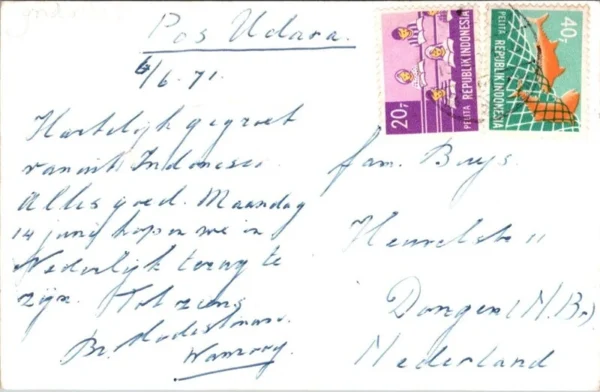 Pos Udara.
6/6.71.
Hartelijk gegroet
vanuit Indonesie.
Alles goed. Maandag
14 juni hopen we in
Nederlijk terug te
zijn. Tot ziens
Br. Modestinus.
Wanrooy
20,-
PELITA REPUBLIK INDONESIA
40,-
PELITA
REPUBLIK INDONESIA
fam. Buys.
Heuvelstr 11
Dongen (N.Br.)
Nederland